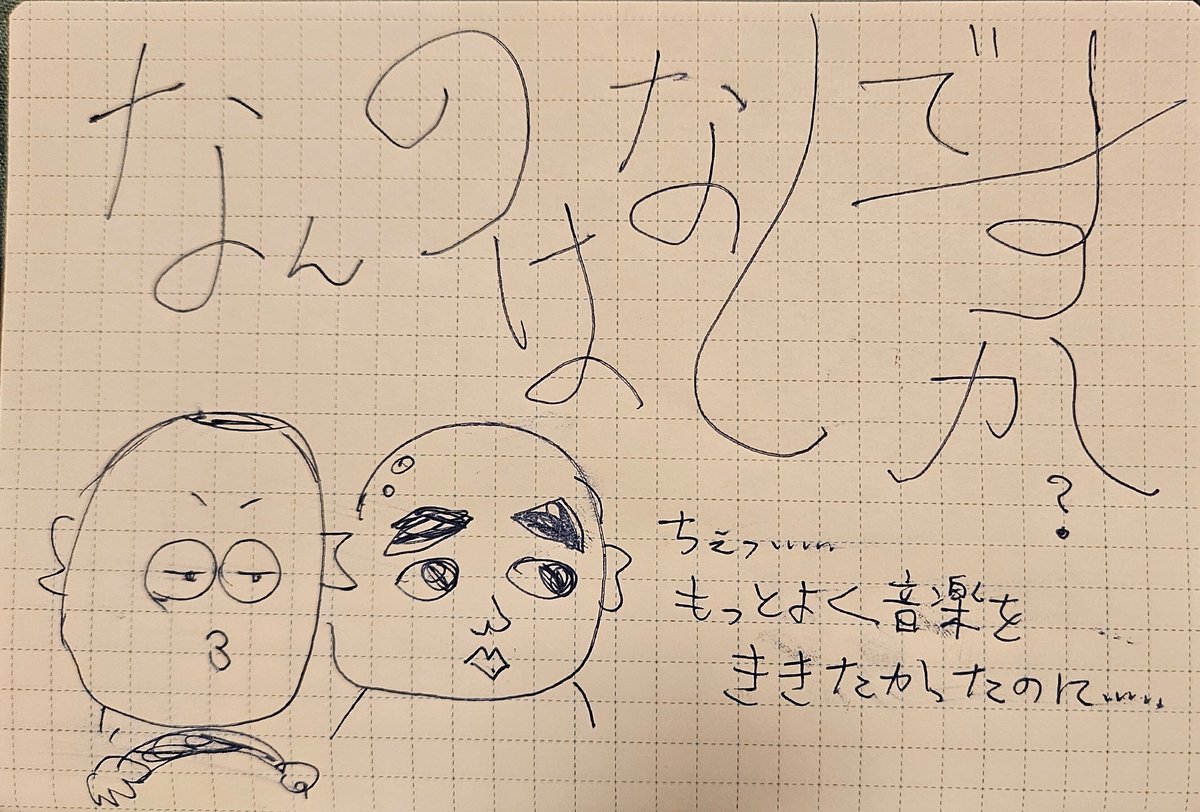 なんのはなしですか?
ちぇっ……
もっとよく音楽を
ききたかったのに……